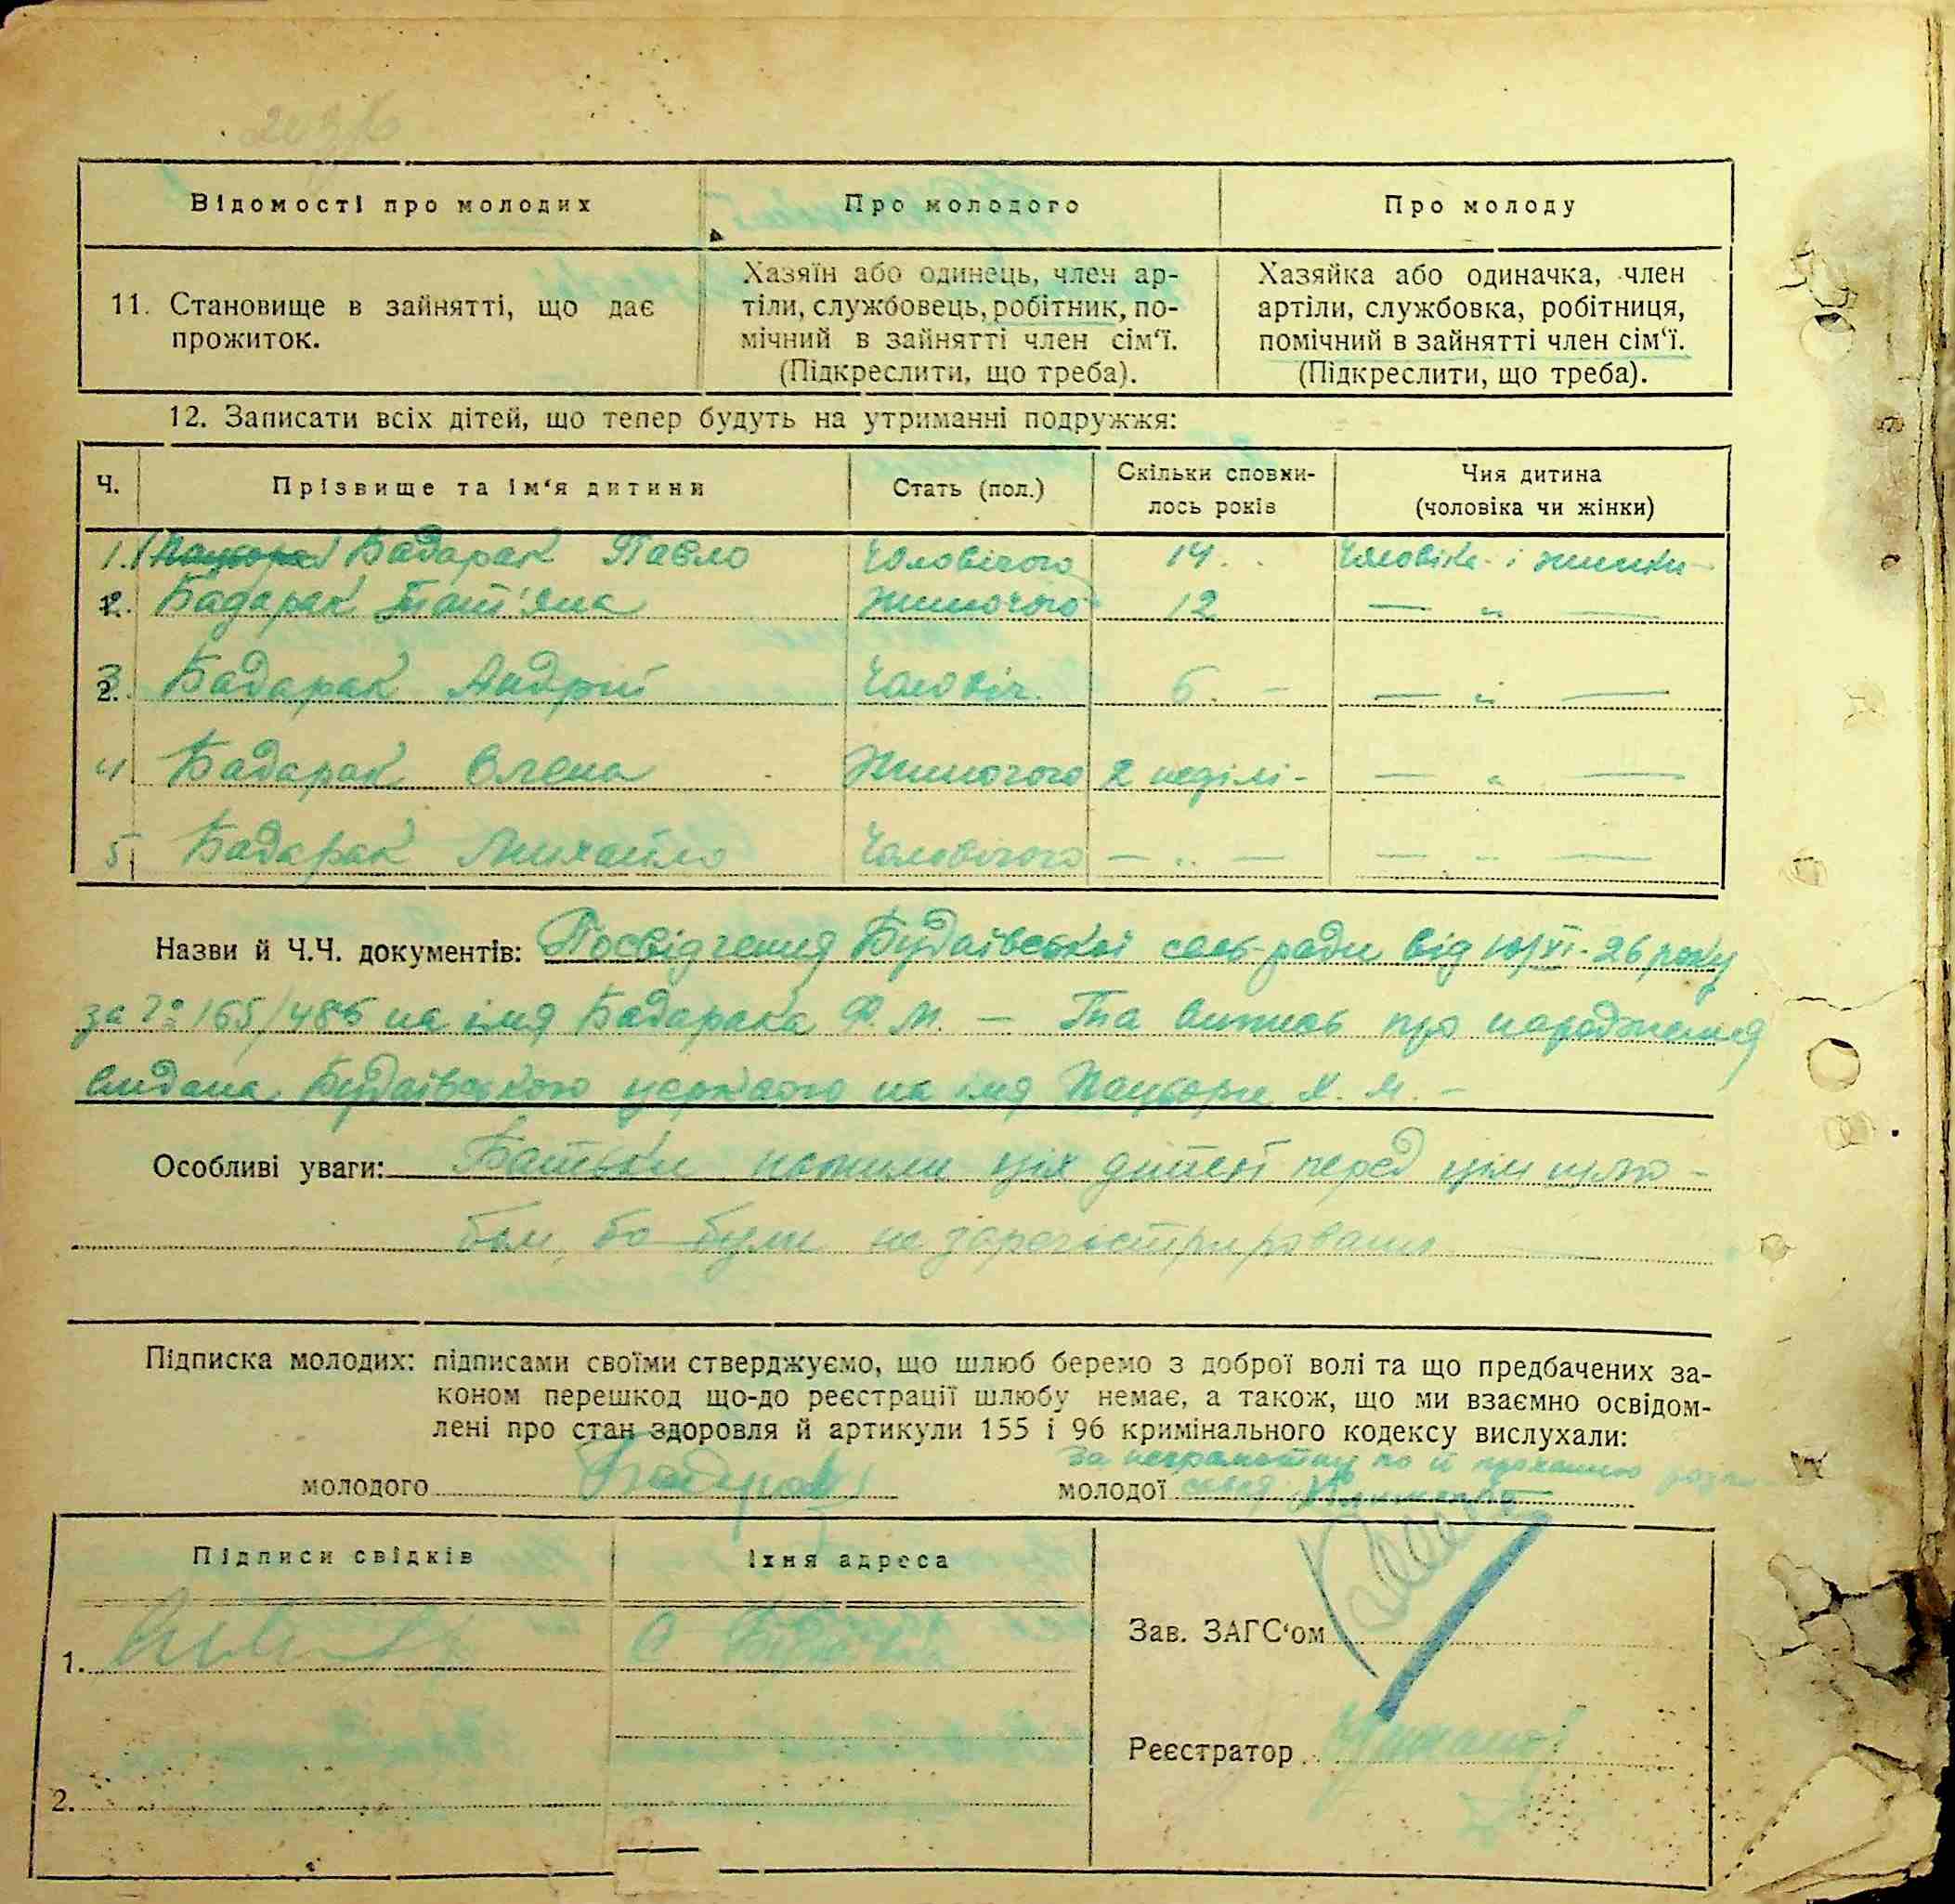 Відомості про молодих
Про молодого
Про молоду
11. Становище в зайнятті, що дає
прожиток.
Хазяїн або одинець, член ар-
тіли, службовець, робітник, по-
мічний в зайнятті член сім'ї.
(Підкреслити, що треба).
Хазяйка або одиначка, член
артіли, службовка, робітниця,
помічний в зайнятті член сім'ї.
(Підкреслити, що треба).
12. Записати всіх дітей, що тепер будуть на утриманні подружжя:
Ч.
Прізвище та ім'я дитини
Стать (пол.)
Скільки сповни-
лось років
Чия дитина
(чоловіка чи жінки)
1. Бадарак Павло Чоловічого 14. Чоловіка і жинки
2. Бадарак Тат'яна Жиночого 12 — „ —
3. Бадарак Андрій Чоловіч. — „ —
4. Бадарак Олена Жиночого 2 неділі — „ —
5 Бадарак Михайло Чоловічого — „ — — „ —
Назви й Ч.Ч. документів: Посвідчення Будаївської сель-ради від 10/VI-26 року
за № 165/486 на імя Бадарака Ф. М. — Та випись про народження
видана Будаївською церквою на імя Х. М. —
Особливі уваги: Батьки цих дітей перед цім шлю-
бом, бо були не зарегістрировани
Підписка молодих: підписами своїми стверджуємо, що шлюб беремо з доброї волі та що предбачених за-
коном перешкод що-до реєстрації шлюбу немає, а також, що ми взаємно освідом-
лені про стан здоровля й артикули 155 і 96 кримінального кодексу вислухали:
За неграмотну по її проханню
молодого Бадарак
молодої
Підписи свідків
Їхня адреса
1.
С Будаївка
2.
Зав. ЗАГС'ом
Реєстратор